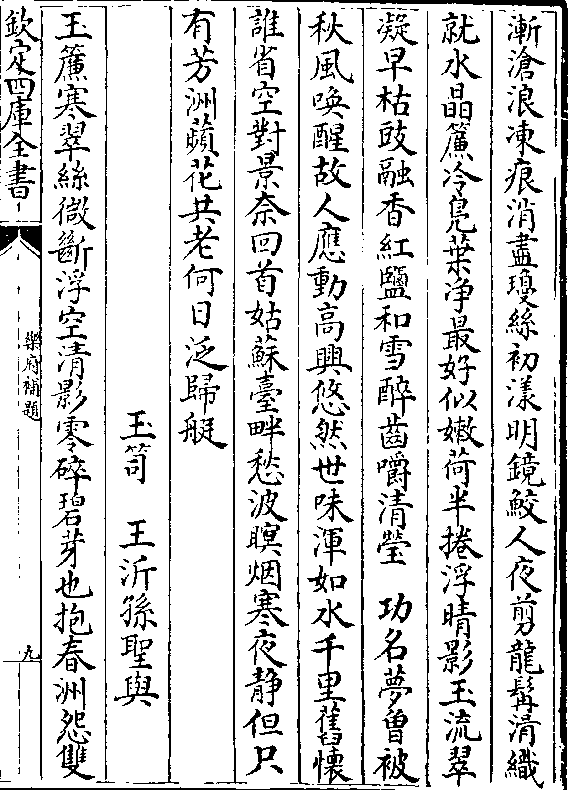 漸滄浪凍痕消盡瓊絲初漾明鏡鮫人夜剪龍髯滑織
就水晶簾冷鳧葉净最好似嫩荷半捲浮晴影玉流翠
凝早枯豉融香紅鹽和雪醉齒嚼清瑩 功名夢曾被
秋風喚醒故人應動高興悠然世味渾如水千里舊懷
誰省空對景奈回首姑蘇臺畔愁波暝烟寒夜静但只
有芳洲蘋花共老何日泛歸艇
玉笥 王沂孫聖與
玉簾寒翠絲微斷浮空清影零碎碧芽也抱春洲怨雙
欽定四庫全書
樂府補題
九